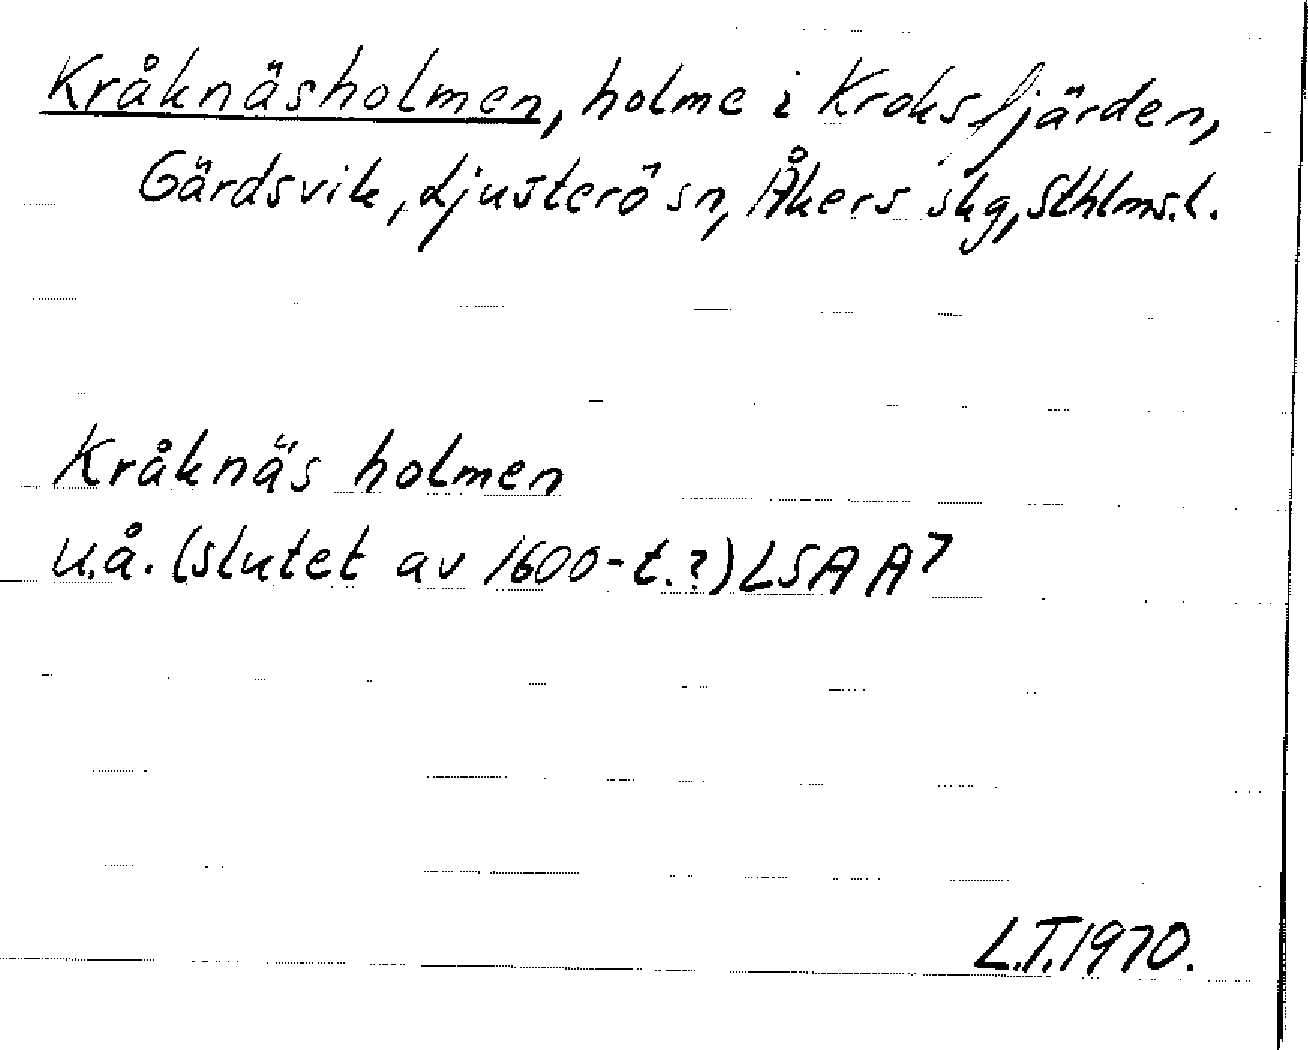 Kråknäsholmen, holme i Kroksfjärden,
Gärdsvik, Ljusterö sn, Åkers skg, Sthlms. l.
Kråknäs holmen
u.å. (slutet av 1600-t.?) LSA A7
L.T. 1970.